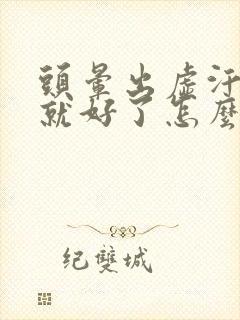 頭暈出虛汗
就好了怎麼
纪雙城